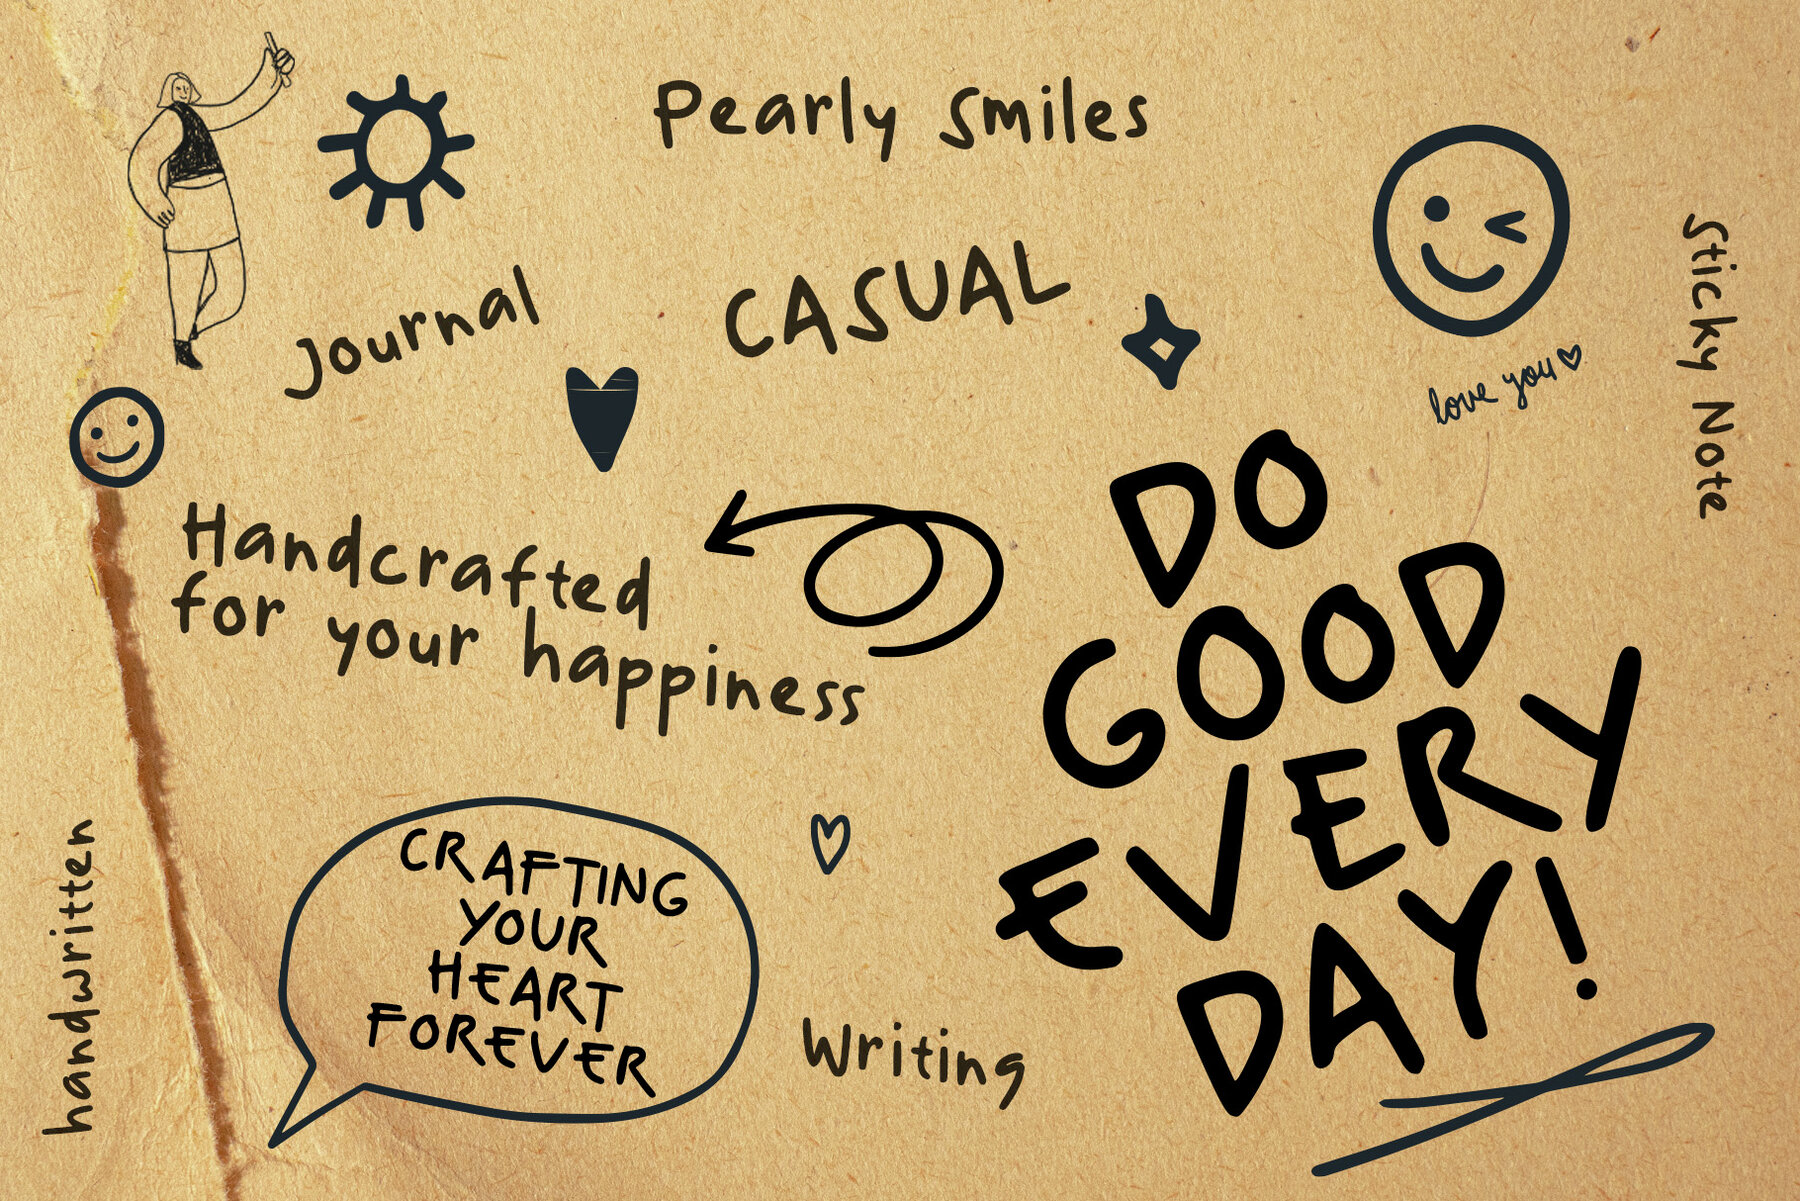 Pearly Smiles
Journal
CASUAL
Sticky Note
love you
Handcrafted
for your happiness
DO
GOOD
EVERY
DAY!
handwritten
CRAFTING
YOUR
HEART
FOREVER
Writing